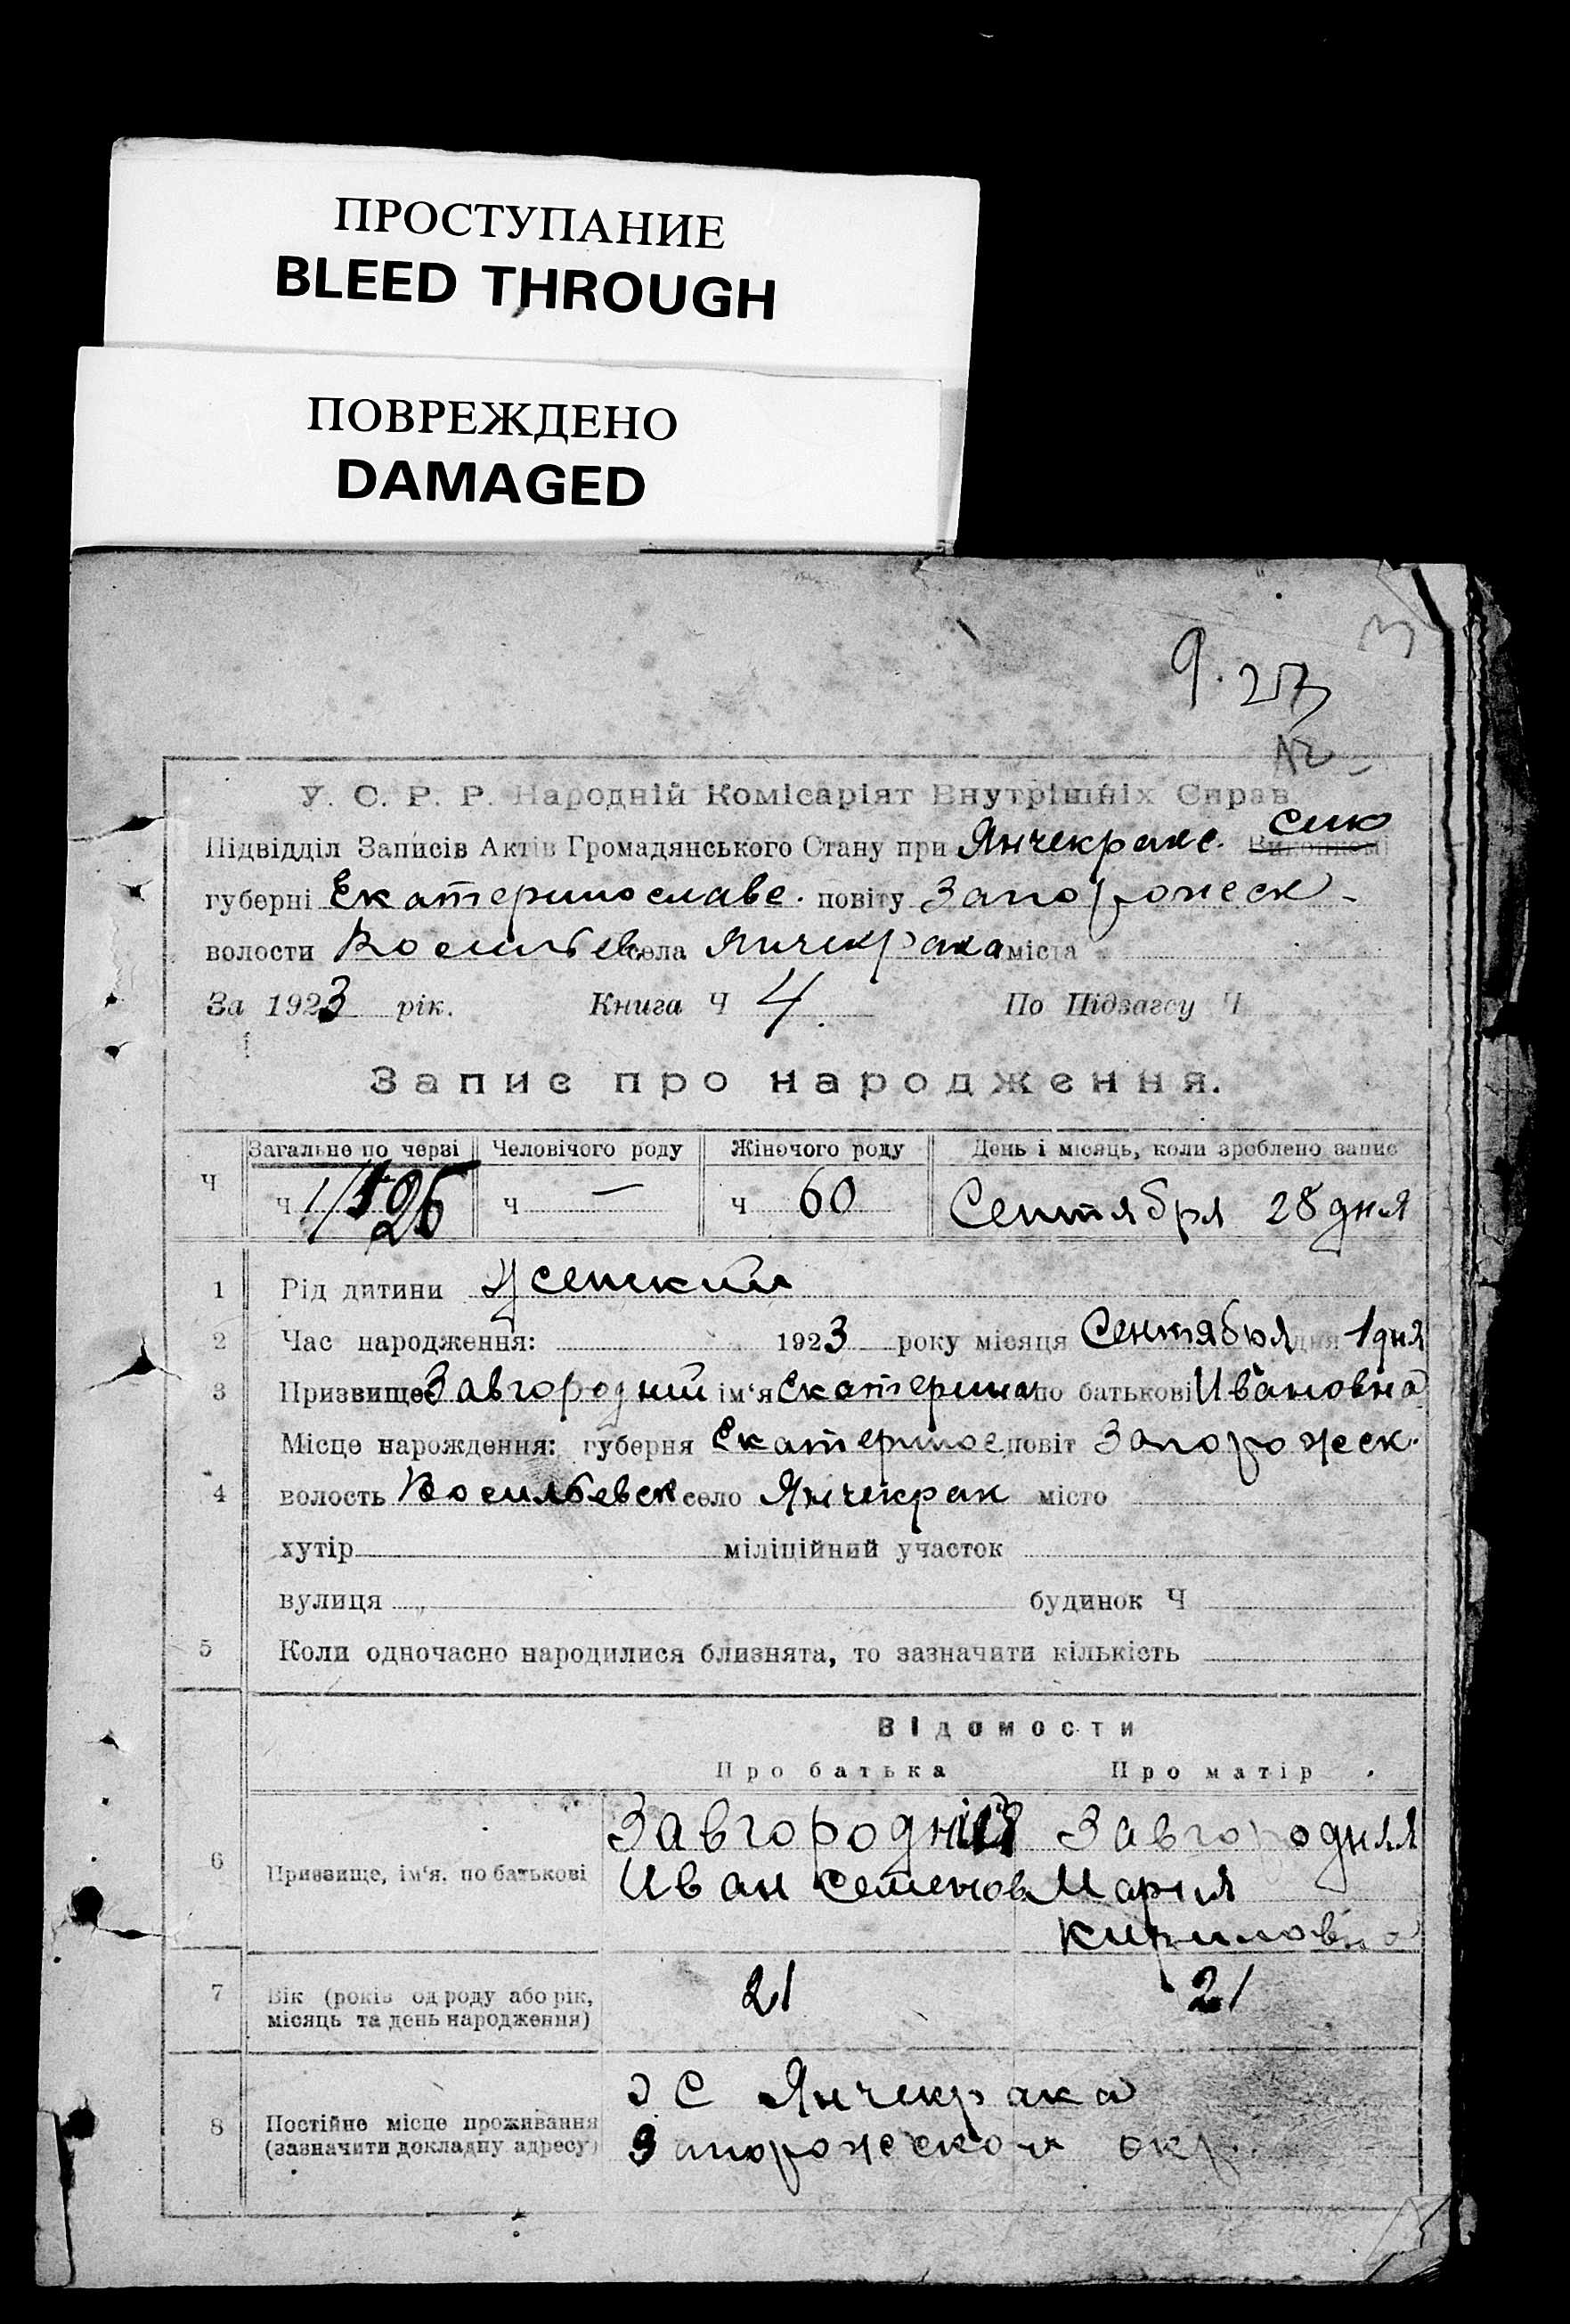 ПРОСТУПАНИЕ
BLEED THROUGH
ПОВРЕЖДЕНО
DAMAGED
9. 23
У. С. Р. Р. Народній Комісаріят Внутрішніх Справ
сию
Підвідділ Записів Актів Громадянського Стану при Янчекракс. Виконкомі
губерні Екатеринославс. повіту Запорожеск
волости Восильев села Янчекрака міста
За 1923 рік. Книга Ч 4 По Підзагсу Ч
Запис про народження.
Загальне по черзі Человічого роду Жіночого роду День і місяць, коли зроблено запис
Ч Ч 126 Ч — Ч 60 Сентября 28 дня
1 Рід дитини женский
2 Час народження: 1923 року місяця Сентября дня 1 дня
3 Призвище Завгородний ім'я Екатерина по батькові Ивановна
Місце нарождення: губерня Екатеринос повіт Запорожеск.
4 волость Восильевск село Янчекрак місто
хутір міліційний участок
вулиця будинок Ч
5 Коли одночасно народилися близнята, то зазначити кількість
Відомости
Про батька Про матір
6 Призвище, ім'я, по батькові
Завгородний Завгородняя
Иван Семенов Мария
Кириловна
7 Вік (років од роду або рік, місяць та день народження) 21 21
8 Постійне місце проживання (зазначити докладну адресу)
С Янчекрака
Запорожеской окр.